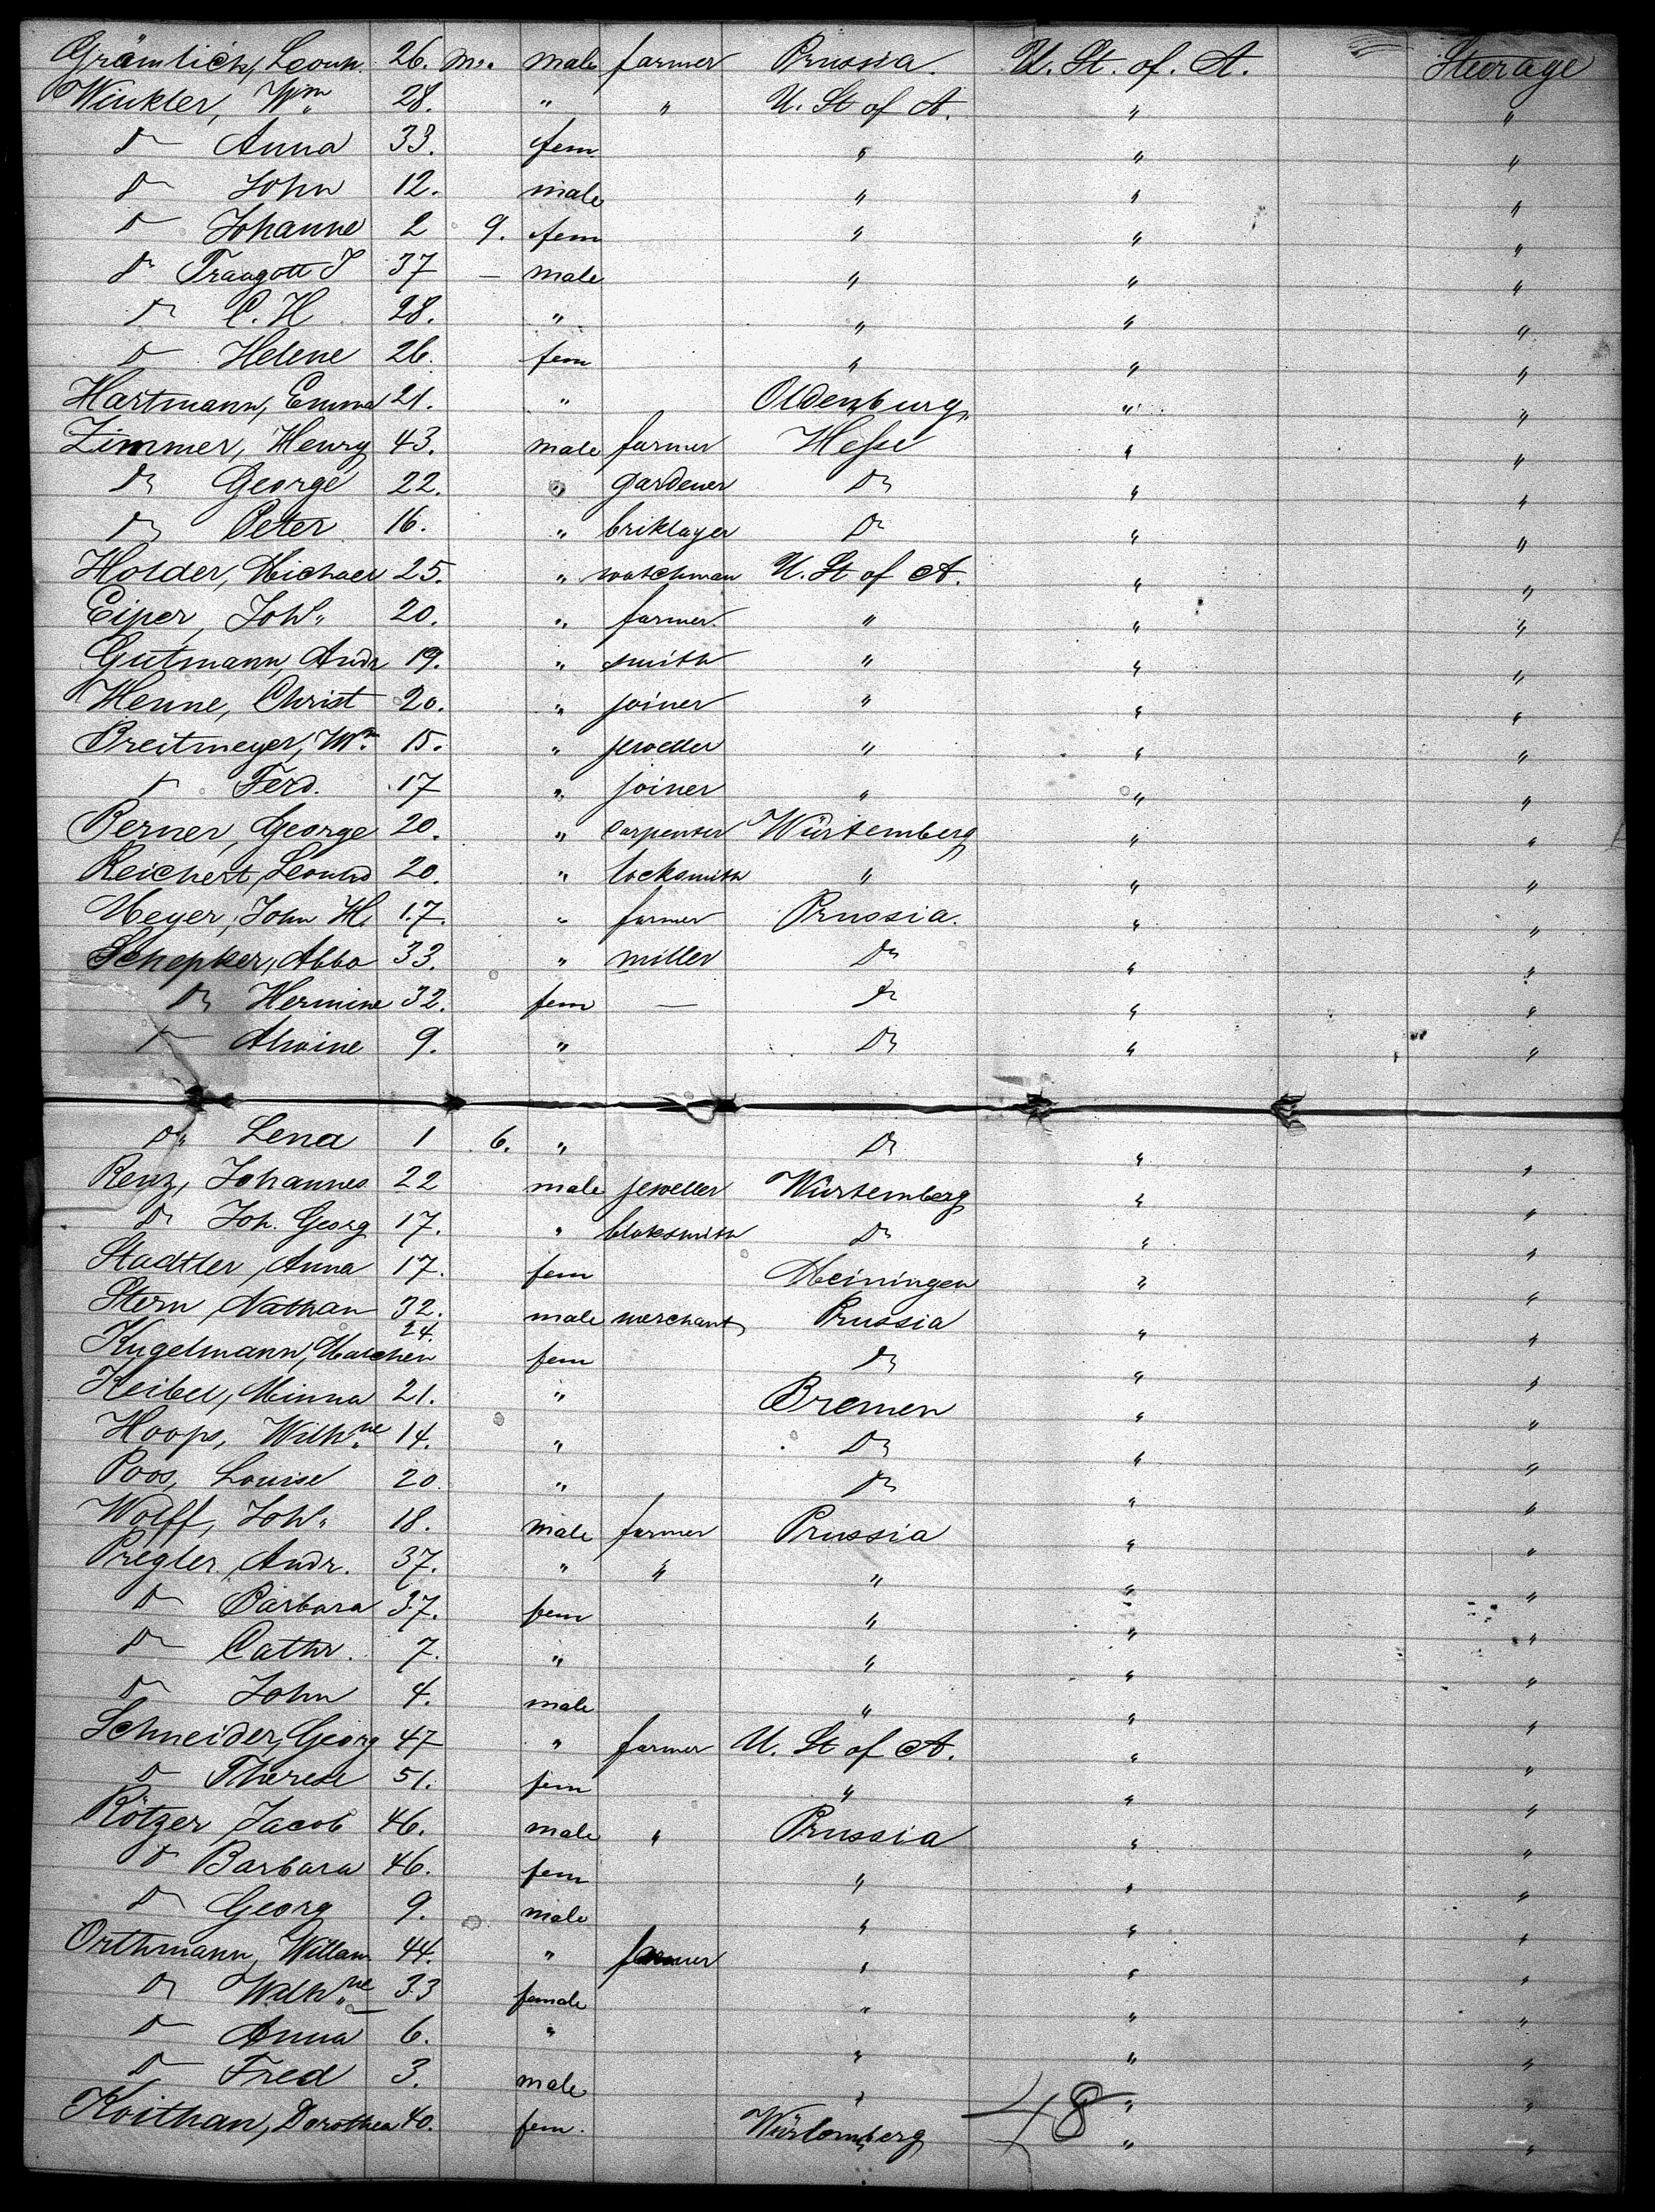 Grämlich, Leonh. 26. m. male farmer Prussia. U. St. of. A. Steerage
Winkler, Wm 28. " " U. St of A. " "
Do Anna 33. fem. " " "
Do John 12. male " " "
Do Johanne 2 9. fem " " "
Do Traugott J 37 — male " " "
Do C. H. 28. " " " "
Do Helene 26. fem " " "
Hartmann, Emma 21. " Oldenburg " "
Zimmer, Henry 43. male farmer Hesse " "
Do George 22. " gardener Do " "
Do Peter 16. " briklayer Do " "
Holder, Michael 25. " watchman U. St of A. " "
Eiper, Joh. 20. " farmer " " "
Gutmann, Andr 19. " smith " " "
Henne, Christ 20. " joiner " " "
Breitmeyer, Wm. 15. " jeweller " " "
Do Ferd. 17 " joiner " " "
Berner, George 20. " carpenter Würtemberg " "
Reichert, Leonhd 20. " locksmith " " "
Meyer, John H. 17. " farmer Prussia. " "
Schepker, Abbo 33. " miller Do " "
Do Hermine 32. fem — Do " "
Do Alwine 9. " Do " "
Do Lena 1 6. " Do " "
Renz, Johannes 22 male jeweller Würtemberg " "
Do Joh. Georg 17. " blaksmith Do " "
Stadtler, Anna 17. fem Meiningen " "
Stern, Nathan 32. male merchant Prussia " "
Kugelmann, Malchen 24. fem Do " "
Keibel, Minna 21. " Bremen " "
Hoops, Wilhne 14. " Do " "
Poos, Louise 20 " Do " "
Wolff, Joh. 18. male farmer Prussia " "
Pregler, Andr. 37. " " " " "
Do Barbara 37. fem " " "
Do Cathr. 7. " " " "
Do John 4. male " " "
Schneider, Georg 47 " farmer U. St of A. " "
Do Therese 51. fem " " "
Rötzer, Jacob 46. male " Prussia " "
Do Barbara 46. fem " " "
Do Georg 9. male " " "
Orthmann, Willam 44. " farmer " " "
Do Wilhne 33 female " " "
Do Anna 6. " " " "
Do Fred 3. male " " "
Koithan, Dorothea 40. fem. Würtemberg " "
48